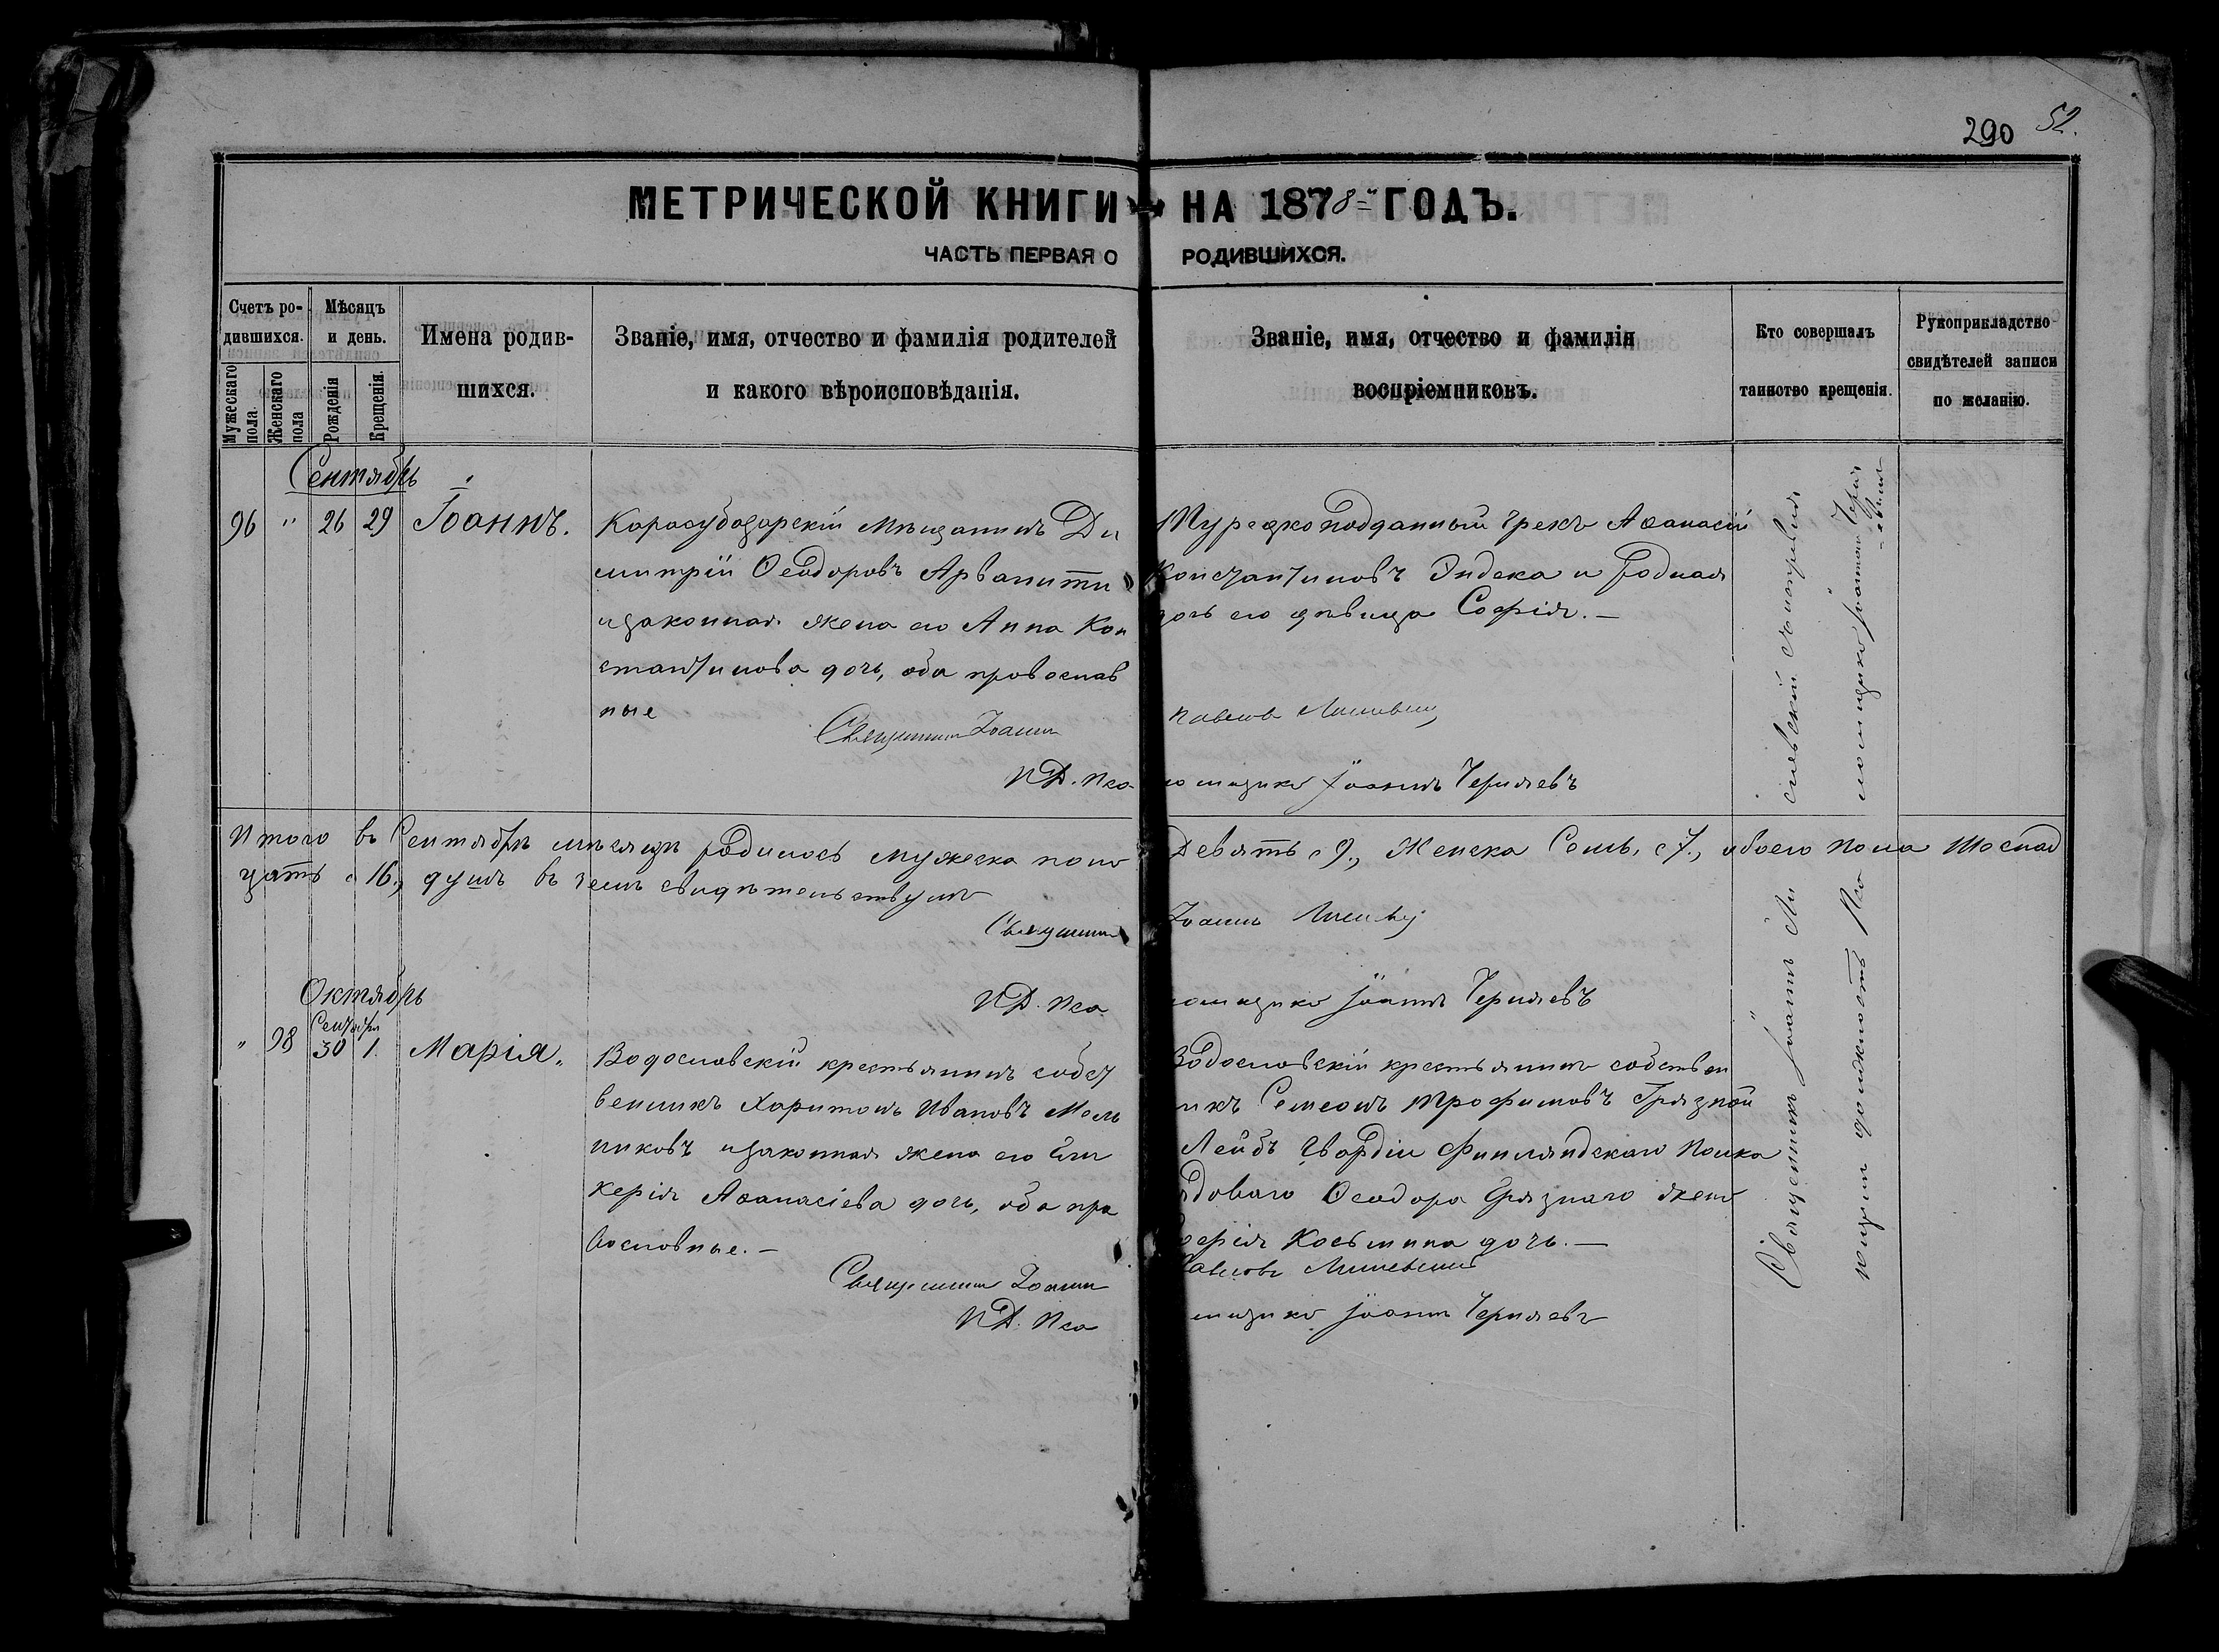 290 52.
МЕТРИЧЕСКОЙ КНИГИ НА 1878й ГОДЪ.
ЧАСТЬ ПЕРВАЯ О РОДИВШИХСЯ.
Счетъ ро-
дившихся.
Мужескаго пола.
Женскаго пола
Мѣсяцъ
и день.
Рожденія
Крещенія.
Имена родив-
шихся.
Званіе, имя, отчество и фамилія родителей
и какого вѣроисповѣданія.
Званіе, имя, отчество и фамилія
воспріемниковъ.
Кто совершалъ
таинство крещенія.
Рукоприкладство
свидѣтелей записи
по желанію.
Сентябрь
96 " 26 29 Іоаннъ.
Карасубазарскій Мѣщанинъ Ди
митрій Ѳеодоровъ Арванити
и законная жена его Анна Кон
стантинова дочь, оба православ
ные
Турецко подданный грекъ Аѳанасій
Константиновъ Эндека и родная
дочь его дѣвица Софія. —
Священникъ Іоаннъ
И.Д. Пса
ломщика Іоаннъ Черняевъ
Итого въ Сентябрѣ мѣсяцѣ родилось мужеска пола Девять "9", Женска Семь, "7", обоего пола Шеснад
цать "16", душъ въ чемъ свидѣтельствуемъ
Священникъ Іоаннъ
И.Д. Пса
ломщика Іоаннъ Черняевъ
Октябрь
Сентября
" 98 30 1. Марія.
Водославскій крестьянинъ собст
венникъ Харитонъ Ивановъ Мель
никовъ и законная жена его Гли
керія Аѳанасіева дочь, оба пра
вославные. —
Водославскій крестьянинъ собствен
никъ Семеонъ Трофимовъ Грязной
Лейбъ Гвардіи Финляндскаго Полка
рядоваго Ѳеодора Грязнаго жена
Косьмина дочь. —
Священникъ Іоаннъ
И.Д. Пса
ломщика Іоаннъ Черняевъ
Священникъ Іоаннъ
ющій должность Пса
ломщика Іоаннъ Черня
евъ